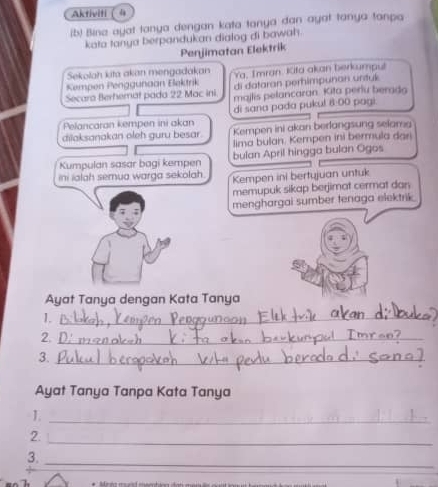 Aktiviti 4
(b) Bina ayat tanya dengan kata tanya dan ayat tanya tanpa
kata tanya berpandukan dialog di bawah.
Penjimatan Elektrik
Sekolah kita akan mengadakan
Kempen Penggunaan Elektrik
Secara Berhemat pada 22 Mac ini.
Ya, Imran. Kita akan berkumpul
di dataran perhimpunan untuk
majlis pelancaran. Kita perlu berada
di sana pada pukul 8:00 pagi.
Pelancaran kempen ini akan
dilaksanakan oleh guru besar.
Kempen ini akan berlangsung selama
lima bulan. Kempen ini bermula dari
bulan April hingga bulan Ogos.
Kumpulan sasar bagi kempen
ini ialah semua warga sekolah.
Kempen ini bertujuan untuk
memupuk sikap berjimat cermat dan
menghargai sumber tenaga elektrik.
Ayat Tanya dengan Kata Tanya
1. Bilakah, Kempen Penggunaan Elektrik akan dibuka?
2. Dimanakah kita akan berkumpul Imran?
3. Pukul berapakah kita perlu berada di sana?
Ayat Tanya Tanpa Kata Tanya
1.
2.
3.